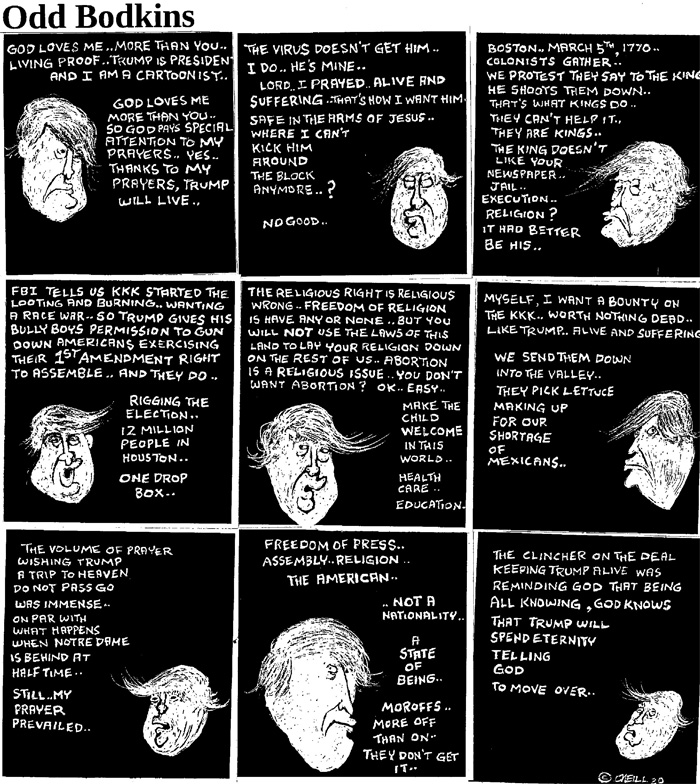 Odd Bodkins
GOD LOVES ME..MORE THAN YOU..
LIVING PROOF..TRUMP IS PRESIDENT
AND I AM A CARTOONIST..
GOD LOVES ME
MORE THAN YOU..
SO GOD PAYS SPECIAL
ATTENTION TO MY
PRAYERS.. YES..
THANKS TO MY
PRAYERS, TRUMP
WILL LIVE..
THE VIRUS DOESN'T GET HIM..
I DO.. HE'S MINE..
LORD.. I PRAYED.. ALIVE AND
SUFFERING..THAT'S HOW I WANT HIM.
SAFE IN THE ARMS OF JESUS..
WHERE I CAN'T
KICK HIM
AROUND
THE BLOCK
ANYMORE..?
NO GOOD..
BOSTON.. MARCH 5TH, 1770..
COLONISTS GATHER..
WE PROTEST THEY SAY TO THE KING
HE SHOOTS THEM DOWN..
THAT'S WHAT KINGS DO..
THEY CAN'T HELP IT..
THEY ARE KINGS..
THE KING DOESN'T
LIKE YOUR
NEWSPAPER..
JAIL..
EXECUTION..
RELIGION?
IT HAD BETTER
BE HIS..
FBI TELLS US KKK STARTED THE
LOOTING AND BURNING.. WANTING
A RACE WAR.. SO TRUMP GIVES HIS
BULLY BOYS PERMISSION TO GUN
DOWN AMERICANS EXERCISING
THEIR 1ST AMENDMENT RIGHT
TO ASSEMBLE.. AND THEY DO..
RIGGING THE
ELECTION..
12 MILLION
PEOPLE IN
HOUSTON..
ONE DROP
BOX..
THE RELIGIOUS RIGHT IS RELIGIOUS
WRONG.. FREEDOM OF RELIGION
IS HAVE ANY OR NONE .. BUT YOU
WILL NOT USE THE LAWS OF THIS
LAND TO LAY YOUR RELIGION DOWN
ON THE REST OF US.. ABORTION
IS A RELIGIOUS ISSUE..YOU DON'T
WANT ABORTION? OK.. EASY..
MAKE THE
CHILD
WELCOME
IN THIS
WORLD..
HEALTH
CARE..
EDUCATION.
MYSELF, I WANT A BOUNTY ON
THE KKK.. WORTH NOTHING DEAD..
LIKE TRUMP. ALIVE AND SUFFERING
WE SEND THEM DOWN
INTO THE VALLEY..
THEY PICK LETTUCE
MAKING UP
FOR OUR
SHORTAGE
OF
MEXICANS..
THE VOLUME OF PRAYER
WISHING TRUMP
A TRIP TO HEAVEN
DO NOT PASS GO
WAS IMMENSE..
ON PAR WITH
WHAT HAPPENS
WHEN NOTRE DAME
IS BEHIND AT
HALF TIME..
STILL..MY
PRAYER
PREVAILED..
FREEDOM OF PRESS..
ASSEMBLY..RELIGION..
THE AMERICAN..
.. NOT A
NATIONALITY..
A
STATE
OF
BEING..
MOROFFS..
MORE OFF
THAN ON..
THEY DON'T GET
IT..
THE CLINCHER ON THE DEAL
KEEPING TRUMP ALIVE WAS
REMINDING GOD THAT BEING
ALL KNOWING, GOD KNOWS
THAT TRUMP WILL
SPEND ETERNITY
TELLING
GOD
TO MOVE OVER..
© O'NEILL 20